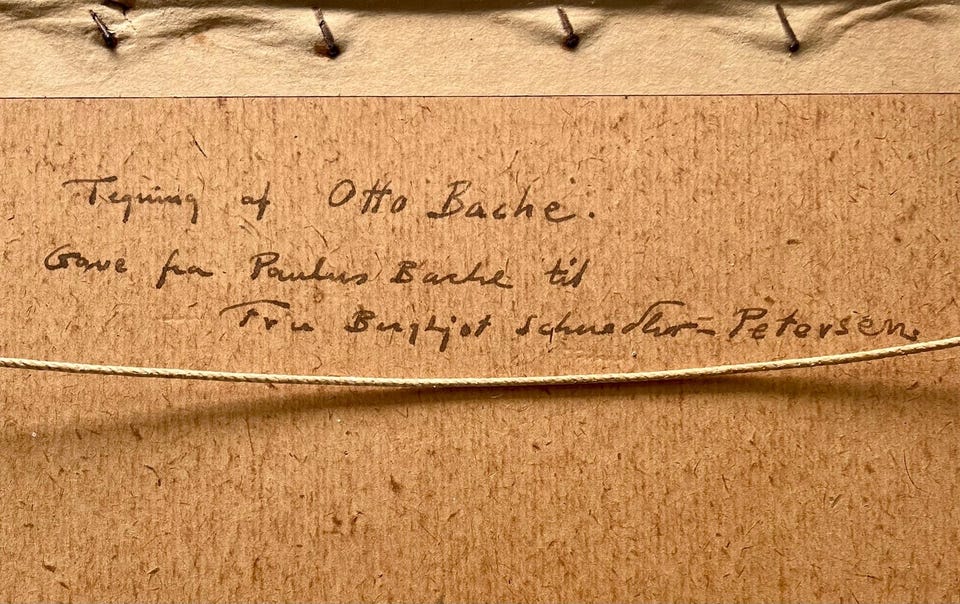 Tegning af Otto Bache.
Gave fra Paulus Bache til
Fru Bergljot Schnedler-Petersen.